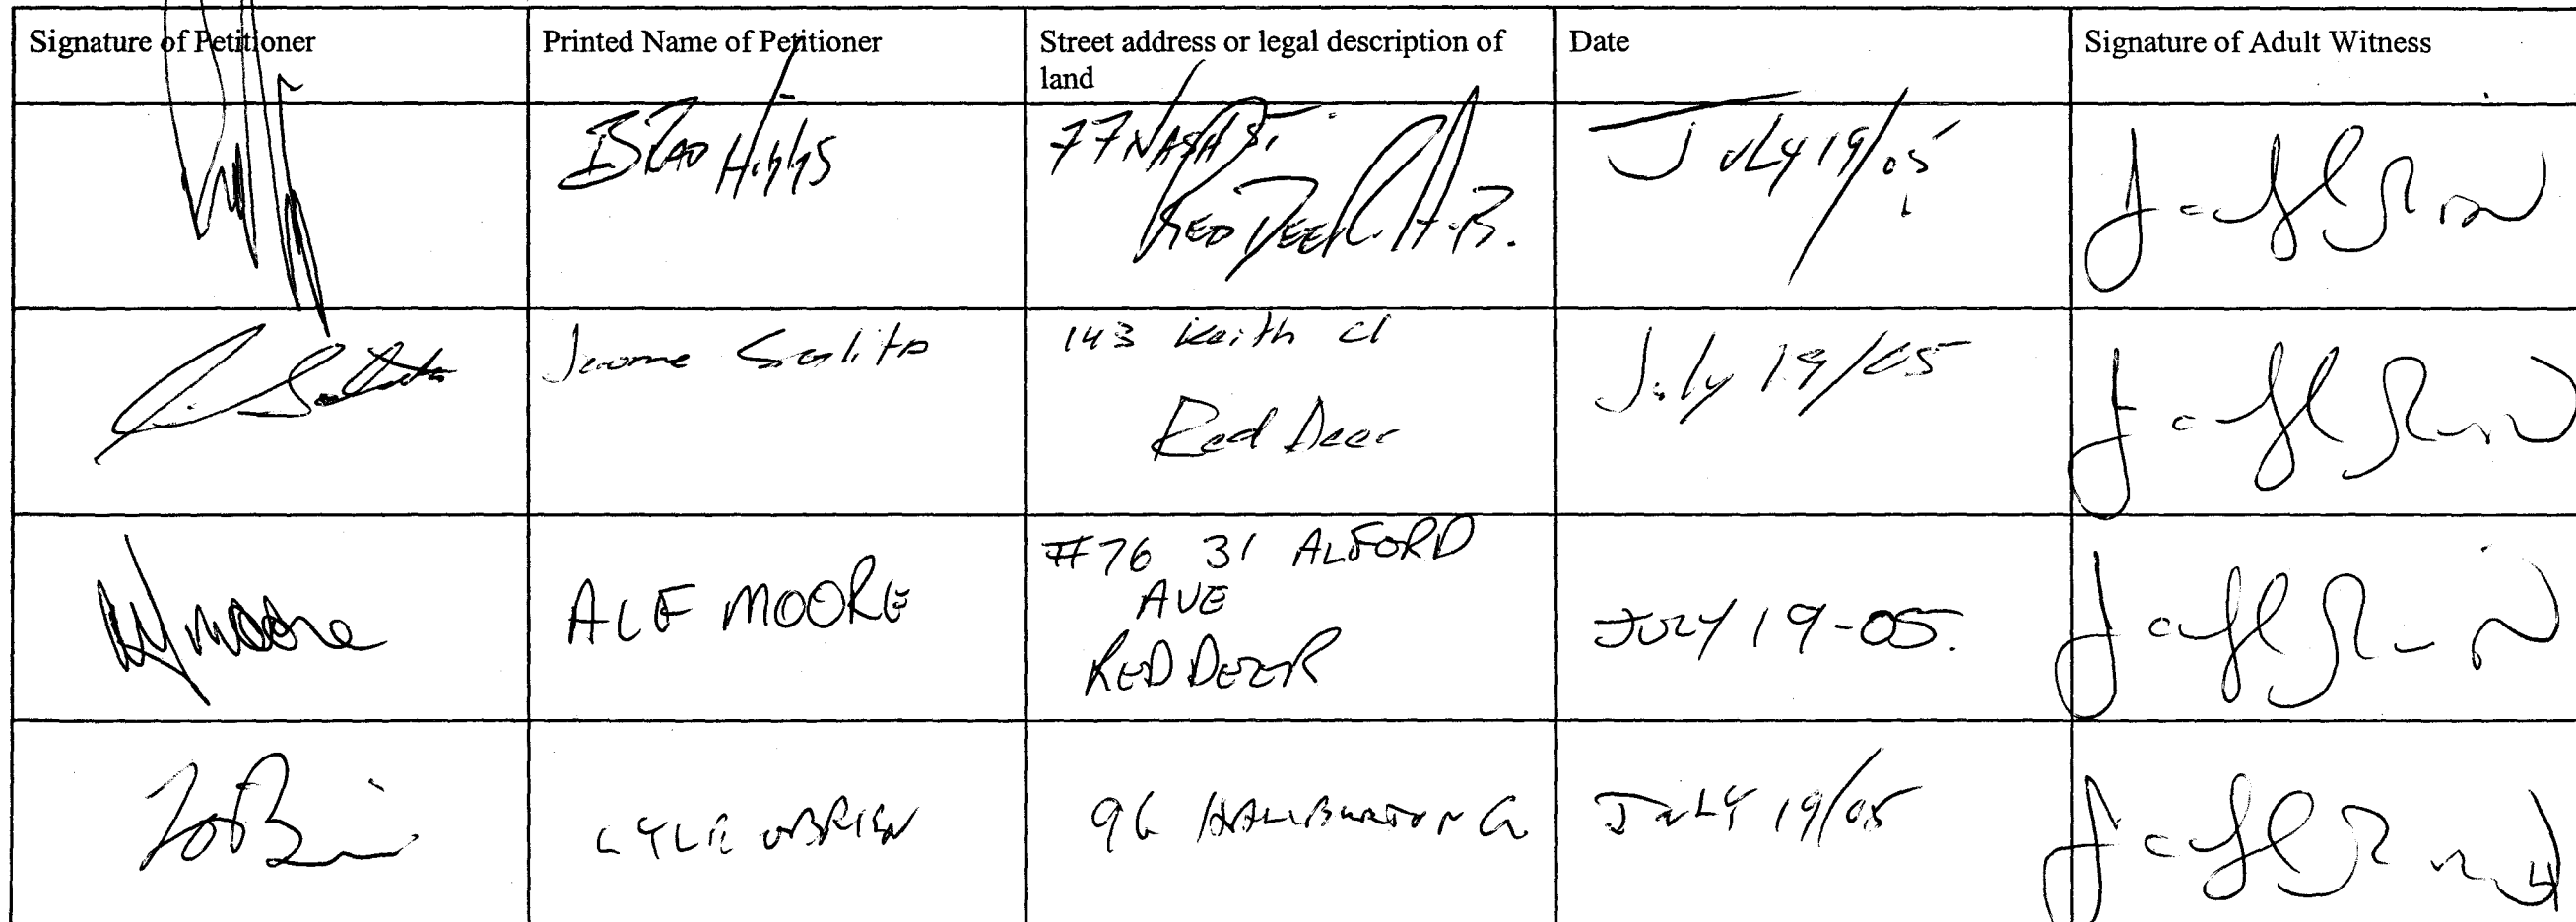 Signature of Petitioner
Printed Name of Petitioner
Street address or legal description of
land
Date
Signature of Adult Witness
BRAD Higgs
77 NASH ST.
RED DEER. A.B.
JULY 19/05
Jerome Saslito
143 Keith Cl
Red Deer
July 19/05
Moore
ALF MOORE
#76 31 ALFORD
AVE
RED DEER
JULY 19-05.
LYLE OBRIEN
96 HALLIBURTON C
JULY 19/05